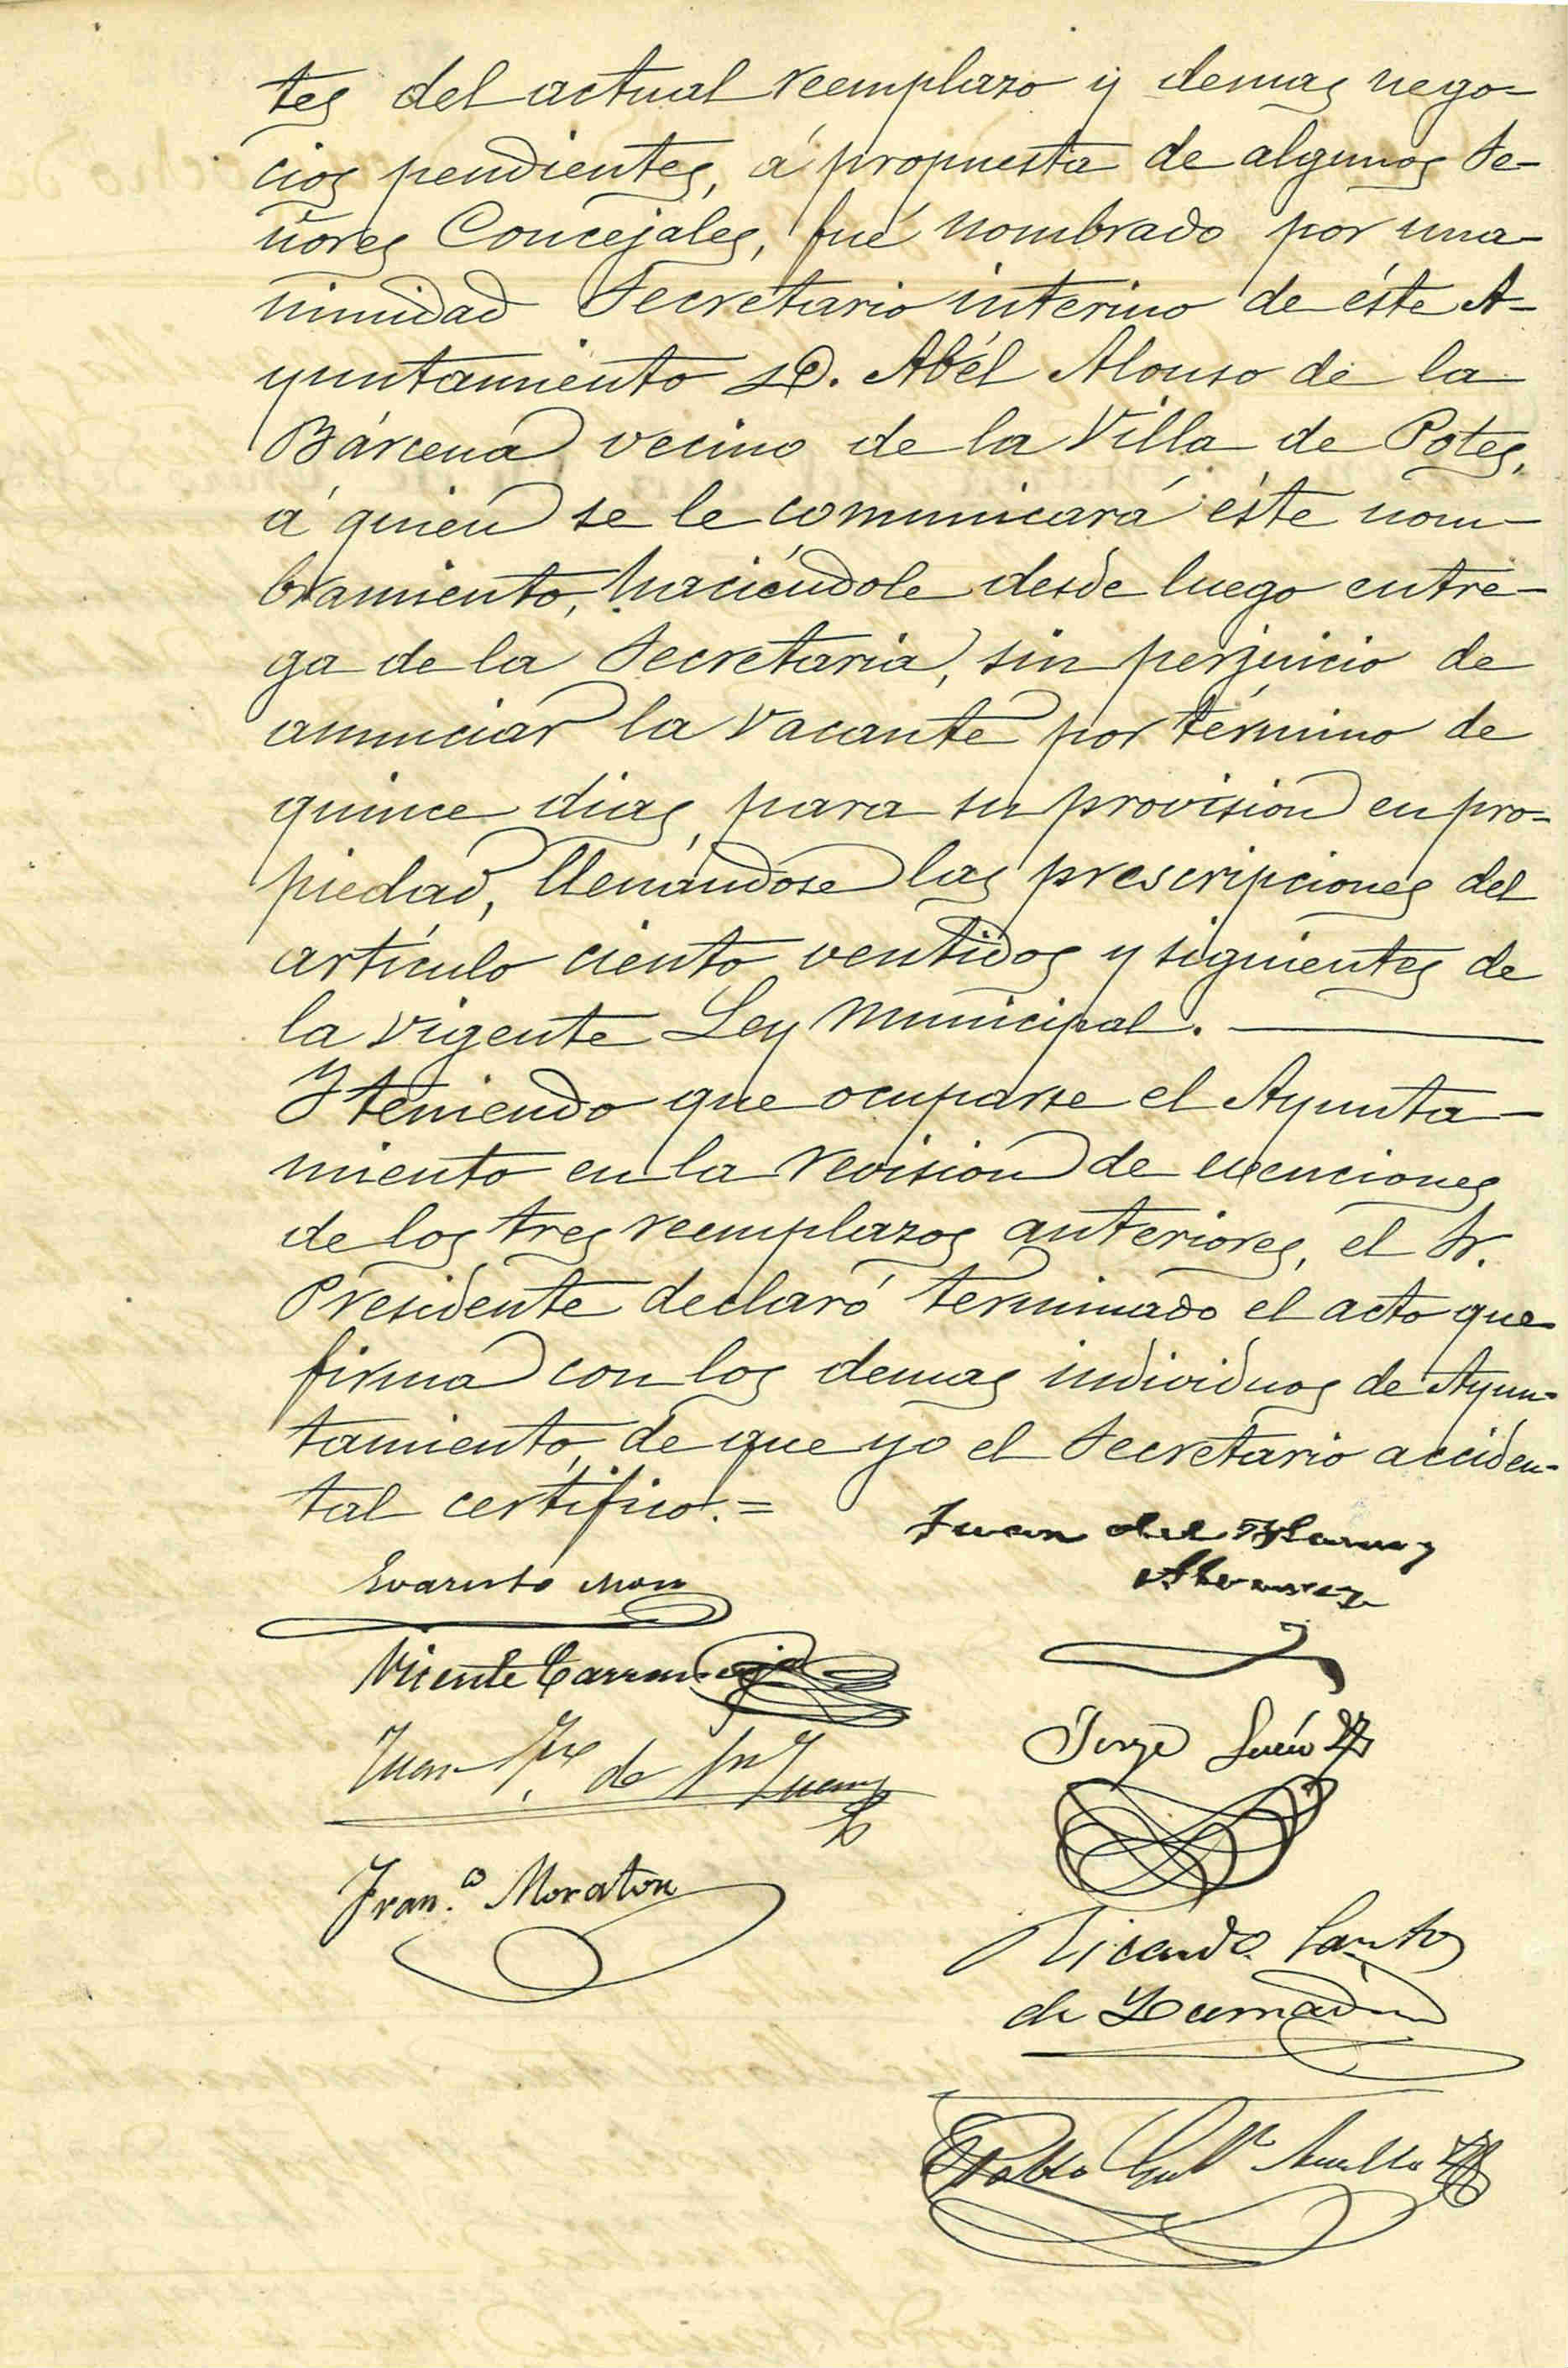 tes del actual reemplazo y demas nego-
cios pendientes, á propuesta de algunos Se-
ñores Concejales, fué nombrado por una-
nimidad Secretario interino de éste A-
yuntamiento D. Abél Alonso de la
Bárcena vecino de la Villa de Potes,
á quien se le comunicará éste nom-
bramiento, haciéndole desde luego entre-
ga de la Secretaria, sin perjuicio de
anunciar la vacante por término de
quince dias, para su provision en pro-
piedad, llenándose las prescripciones del
artículo ciento ventidos y siguientes de
la vigente Ley Municipal.
Y teniendo que ocuparse el Ayunta-
miento en la revision de exenciones
de los tres reemplazos anteriores, el Sr.
Presidente declaró terminado el acto que
firma con los demas individuos de Ayun-
tamiento, de que yo el Secretario acciden-
tal certifico.=
Juan del
Evaristo
Vicente
Jorge
Juan de Sn Juan
Fran.º Moraton
Ricardo Santos
de
Pablo